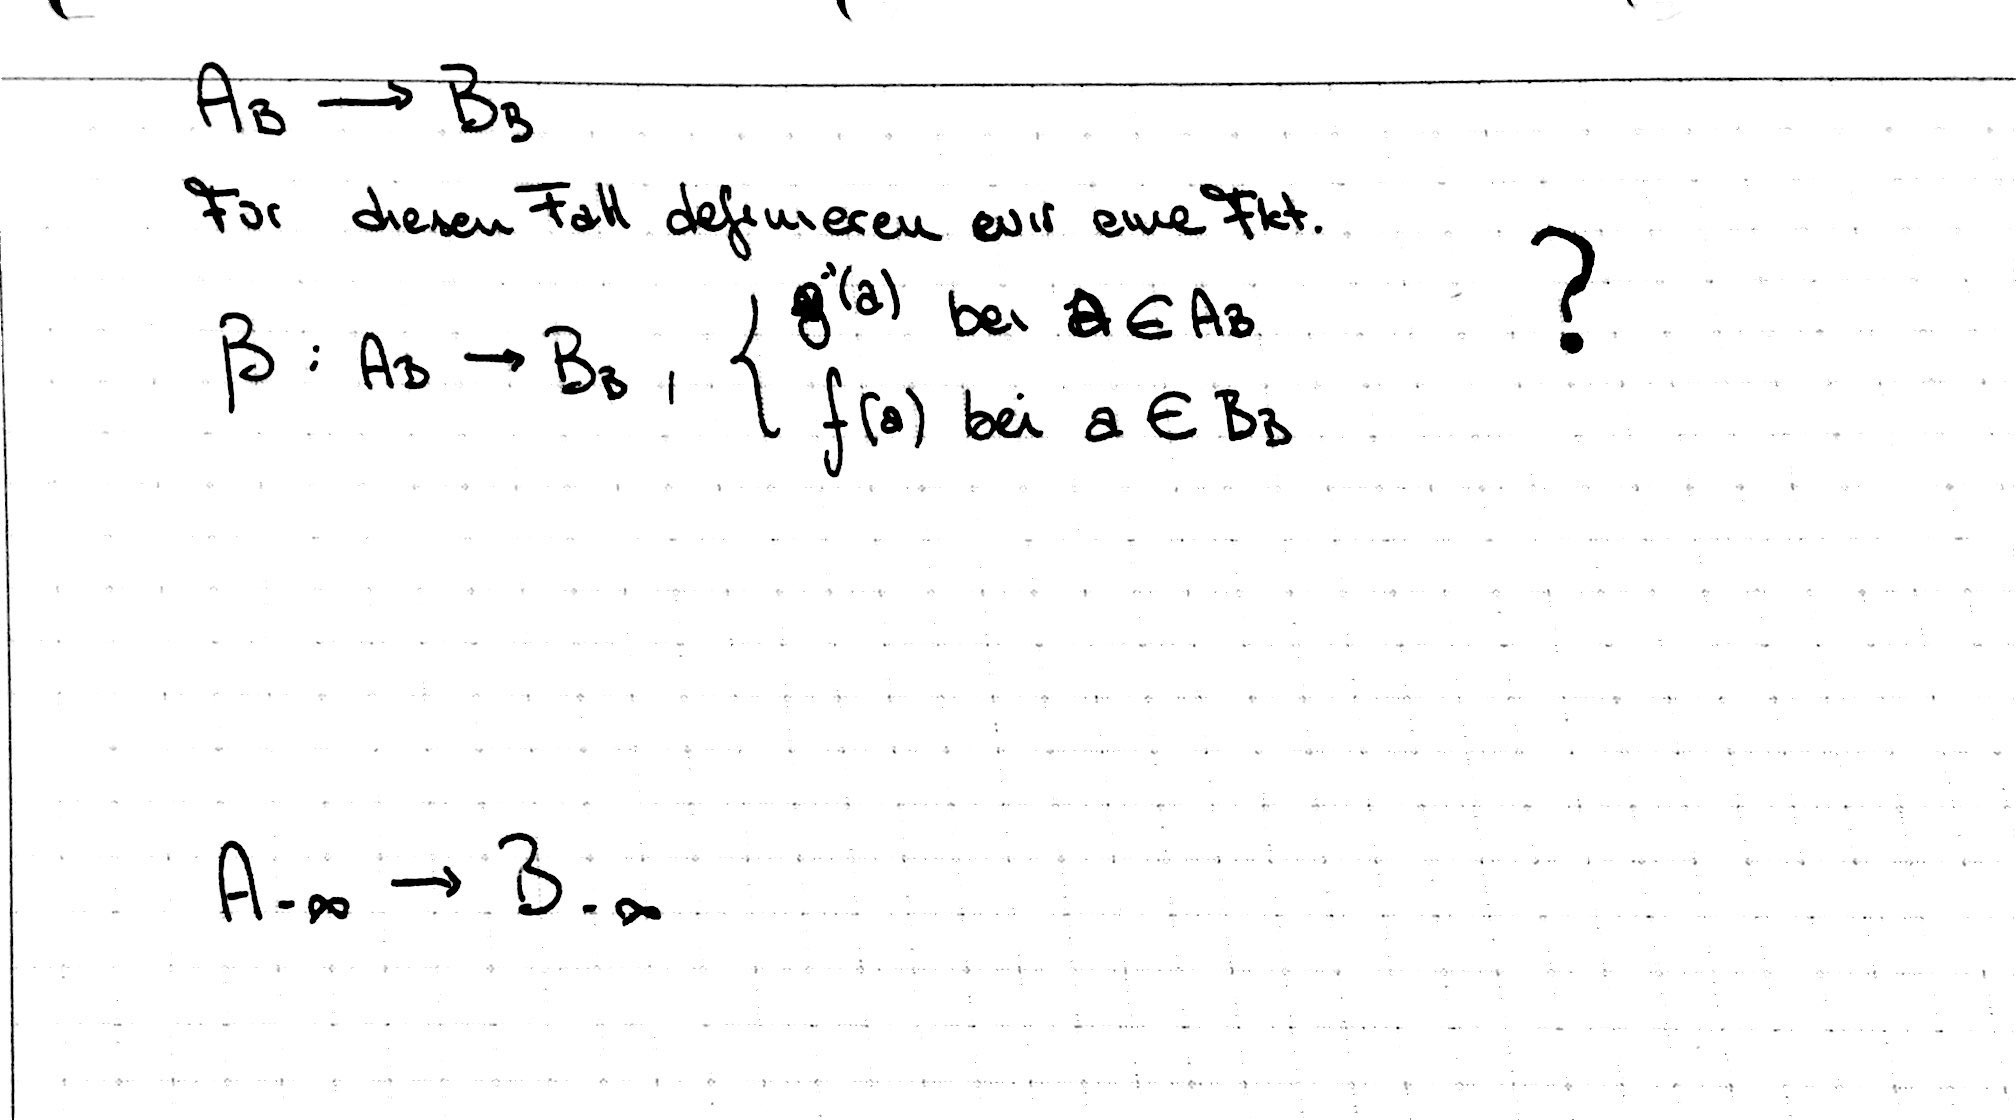 A_B → B_B
Für diesen Fall definieren wir eine Fkt.
β : A_B → B_B , { g⁻¹(a) bei a ∈ A_B
f(a) bei a ∈ B_B
?
A_-∞ → B_-∞